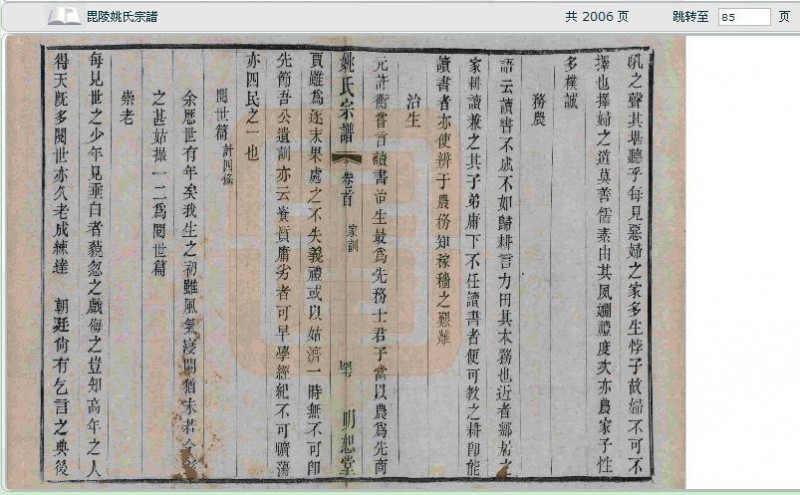 毘陵姚氏宗譜
共 2006 页
跳转至 85 页
吼之聲其堪聽乎每見惡婦之家多生悖子故婦不可不
擇也擇婦之道莫善儒素由其夙嫻禮度次亦農家子性
多樸誠
務農
語云讀書不成不如歸耕言力田其本務也近者鄉居之
家耕讀兼之其子弟庸下不任讀書者便可教之耕即能
讀書者亦使辨于農務知稼穡之艱難
治生
元許衡嘗言讀書治生最爲先務士君子當以農爲先商
姚氏宗譜
卷首
家訓
明恕堂
賈雖爲逐末果處之不失義禮或以姑濟一時無不可卽
先節吾公遺訓亦云資質庸劣者可早學經紀不可曠蕩
亦四民之一也
閱世篇 計四條
余歷世有年矣我生之初雖風氣寖開猶未若今
之甚姑撮一二爲閱世篇
崇老
每見世之少年見垂白者藐忽之戲侮之豈知高年之人
得天旣多閱世亦久老成練達 朝廷尙有乞言之典後